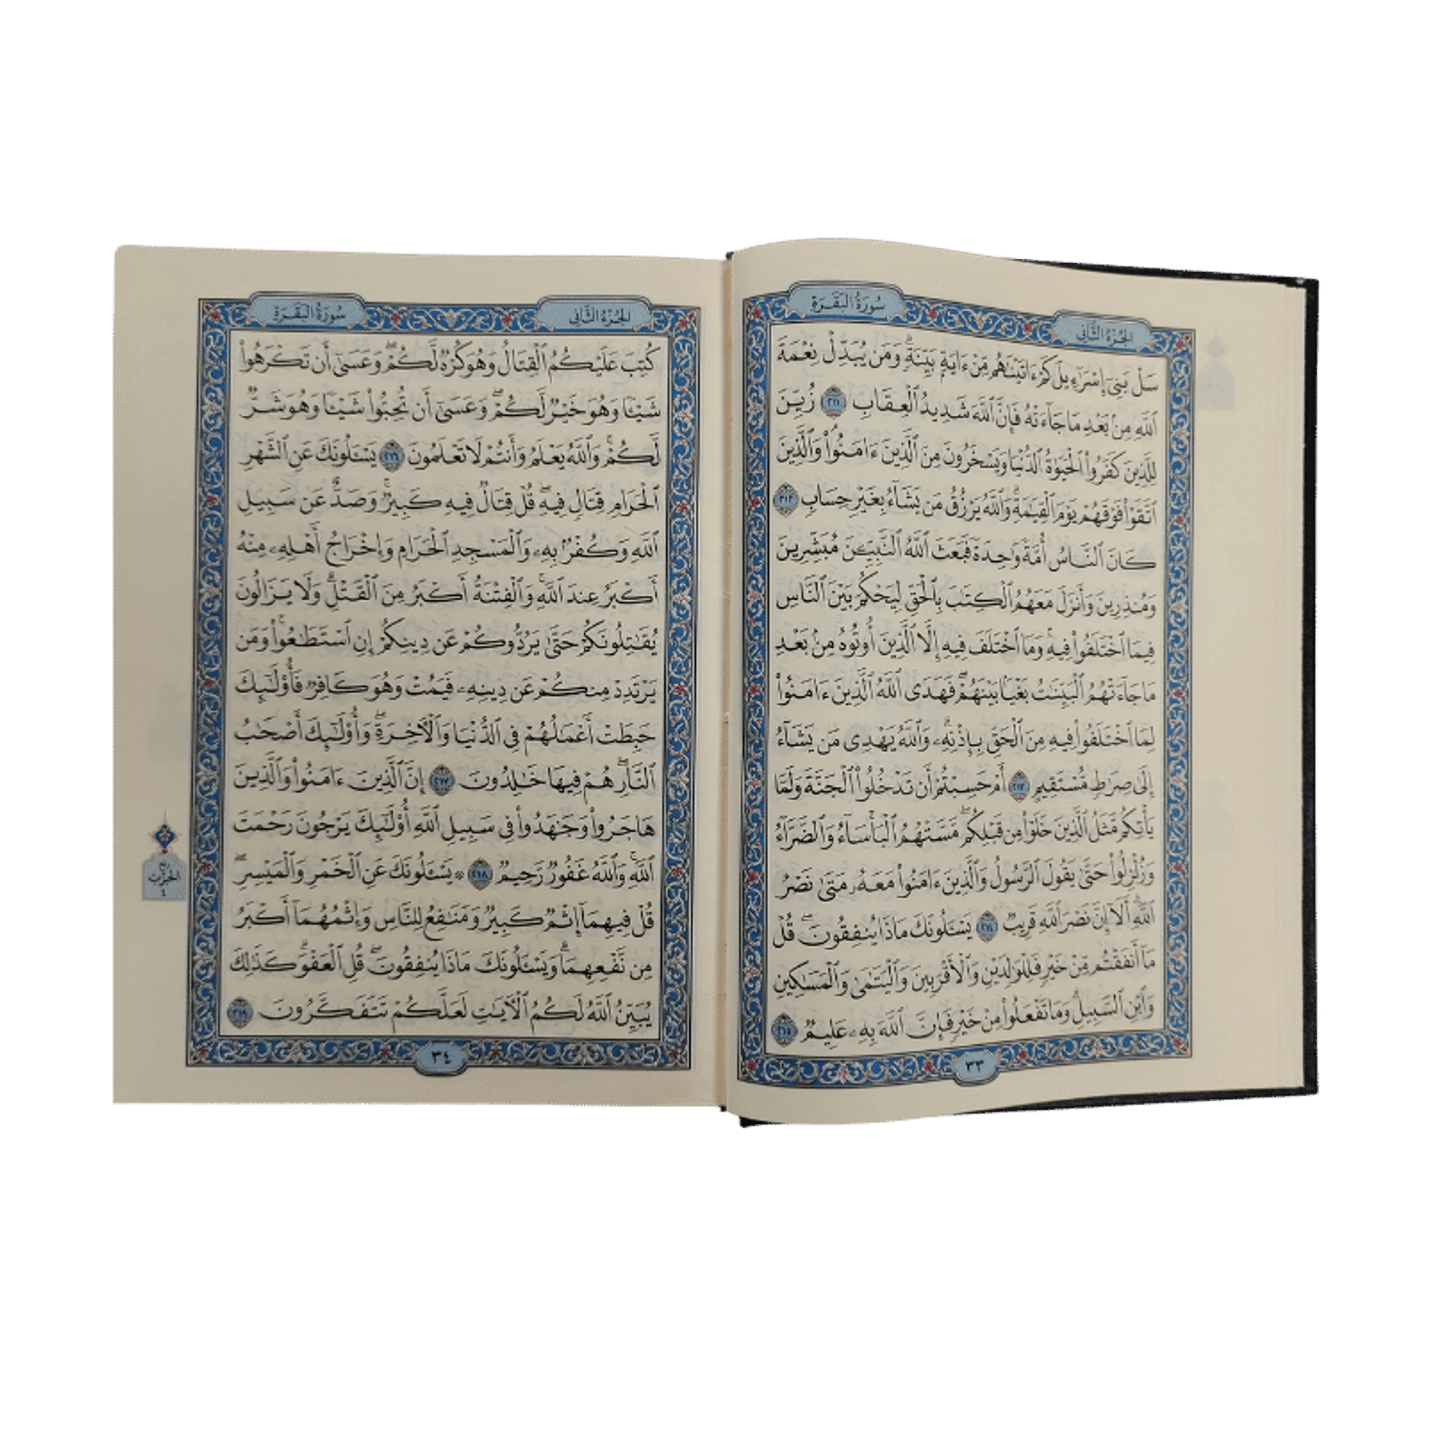 الجُزْءُ الثَّانِي
سُورَةُ البَقَرَةِ
سَلْ بَنِىٓ إِسْرَٰٓءِيلَ كَمْ ءَاتَيْنَٰهُم مِّنْ ءَايَةٍۭ بَيِّنَةٍۗ وَمَن يُبَدِّلْ نِعْمَةَ
ٱللَّهِ مِنۢ بَعْدِ مَا جَآءَتْهُ فَإِنَّ ٱللَّهَ شَدِيدُ ٱلْعِقَابِ ٢١١ زُيِّنَ
لِلَّذِينَ كَفَرُوا۟ ٱلْحَيَوٰةُ ٱلدُّنْيَا وَيَسْخَرُونَ مِنَ ٱلَّذِينَ ءَامَنُوا۟ۘ وَٱلَّذِينَ
ٱتَّقَوْا۟ فَوْقَهُمْ يَوْمَ ٱلْقِيَٰمَةِۗ وَٱللَّهُ يَرْزُقُ مَن يَشَآءُ بِغَيْرِ حِسَابٍ ٢١٢
كَانَ ٱلنَّاسُ أُمَّةً وَٰحِدَةً فَبَعَثَ ٱللَّهُ ٱلنَّبِيِّۦنَ مُبَشِّرِينَ
وَمُنذِرِينَ وَأَنزَلَ مَعَهُمُ ٱلْكِتَٰبَ بِٱلْحَقِّ لِيَحْكُمَ بَيْنَ ٱلنَّاسِ
فِيمَا ٱخْتَلَفُوا۟ فِيهِۚ وَمَا ٱخْتَلَفَ فِيهِ إِلَّا ٱلَّذِينَ أُوتُوهُ مِنۢ بَعْدِ
مَا جَآءَتْهُمُ ٱلْبَيِّنَٰتُ بَغْيًۢا بَيْنَهُمْۖ فَهَدَى ٱللَّهُ ٱلَّذِينَ ءَامَنُوا۟
لِمَا ٱخْتَلَفُوا۟ فِيهِ مِنَ ٱلْحَقِّ بِإِذْنِهِۦۗ وَٱللَّهُ يَهْدِى مَن يَشَآءُ
إِلَىٰ صِرَٰطٍ مُّسْتَقِيمٍ ٢١٣ أَمْ حَسِبْتُمْ أَن تَدْخُلُوا۟ ٱلْجَنَّةَ وَلَمَّا
يَأْتِكُم مَّثَلُ ٱلَّذِينَ خَلَوْا۟ مِن قَبْلِكُمۖ مَّسَّتْهُمُ ٱلْبَأْسَآءُ وَٱلضَّرَّآءُ
وَزُلْزِلُوا۟ حَتَّىٰ يَقُولَ ٱلرَّسُولُ وَٱلَّذِينَ ءَامَنُوا۟ مَعَهُۥ مَتَىٰ نَصْرُ
ٱللَّهِۗ أَلَآ إِنَّ نَصْرَ ٱللَّهِ قَرِيبٌ ٢١٤ يَسْـَٔلُونَكَ مَاذَا يُنفِقُونَۖ قُلْ
مَآ أَنفَقْتُم مِّنْ خَيْرٍ فَلِلْوَٰلِدَيْنِ وَٱلْأَقْرَبِينَ وَٱلْيَتَٰمَىٰ وَٱلْمَسَٰكِينِ
وَٱبْنِ ٱلسَّبِيلِۗ وَمَا تَفْعَلُوا۟ مِنْ خَيْرٍ فَإِنَّ ٱللَّهَ بِهِۦ عَلِيمٌ ٢١٥
٣٣
الجُزْءُ الثَّانِي
سُورَةُ البَقَرَةِ
كُتِبَ عَلَيْكُمُ ٱلْقِتَالُ وَهُوَ كُرْهٌ لَّكُمْۖ وَعَسَىٰٓ أَن تَكْرَهُوا۟
شَيْـًٔا وَهُوَ خَيْرٌ لَّكُمْۖ وَعَسَىٰٓ أَن تُحِبُّوا۟ شَيْـًٔا وَهُوَ شَرٌّ
لَّكُمْۗ وَٱللَّهُ يَعْلَمُ وَأَنتُمْ لَا تَعْلَمُونَ ٢١٦ يَسْـَٔلُونَكَ عَنِ ٱلشَّهْرِ
ٱلْحَرَامِ قِتَالٍ فِيهِۖ قُلْ قِتَالٌ فِيهِ كَبِيرٌۖ وَصَدٌّ عَن سَبِيلِ
ٱللَّهِ وَكُفْرٌۢ بِهِۦ وَٱلْمَسْجِدِ ٱلْحَرَامِ وَإِخْرَاجُ أَهْلِهِۦ مِنْهُ
أَكْبَرُ عِندَ ٱللَّهِۚ وَٱلْفِتْنَةُ أَكْبَرُ مِنَ ٱلْقَتْلِۗ وَلَا يَزَالُونَ
يُقَٰتِلُونَكُمْ حَتَّىٰ يَرُدُّوكُمْ عَن دِينِكُمْ إِنِ ٱسْتَطَٰعُوا۟ۚ وَمَن
يَرْتَدِدْ مِنكُمْ عَن دِينِهِۦ فَيَمُتْ وَهُوَ كَافِرٌ فَأُو۟لَٰٓئِكَ
حَبِطَتْ أَعْمَٰلُهُمْ فِى ٱلدُّنْيَا وَٱلْـَٔاخِرَةِۖ وَأُو۟لَٰٓئِكَ أَصْحَٰبُ
ٱلنَّارِۖ هُمْ فِيهَا خَٰلِدُونَ ٢١٧ إِنَّ ٱلَّذِينَ ءَامَنُوا۟ وَٱلَّذِينَ
هَاجَرُوا۟ وَجَٰهَدُوا۟ فِى سَبِيلِ ٱللَّهِ أُو۟لَٰٓئِكَ يَرْجُونَ رَحْمَتَ
ٱللَّهِۚ وَٱللَّهُ غَفُورٌ رَّحِيمٌ ٢١٨ ۞ يَسْـَٔلُونَكَ عَنِ ٱلْخَمْرِ وَٱلْمَيْسِرِۖ
قُلْ فِيهِمَآ إِثْمٌ كَبِيرٌ وَمَنَٰفِعُ لِلنَّاسِ وَإِثْمُهُمَآ أَكْبَرُ
مِن نَّفْعِهِمَاۗ وَيَسْـَٔلُونَكَ مَاذَا يُنفِقُونَۖ قُلِ ٱلْعَفْوَۗ كَذَٰلِكَ
يُبَيِّنُ ٱللَّهُ لَكُمُ ٱلْـَٔايَٰتِ لَعَلَّكُمْ تَتَفَكَّرُونَ ٢١٩
٣٤
ربع
الحزب
٤